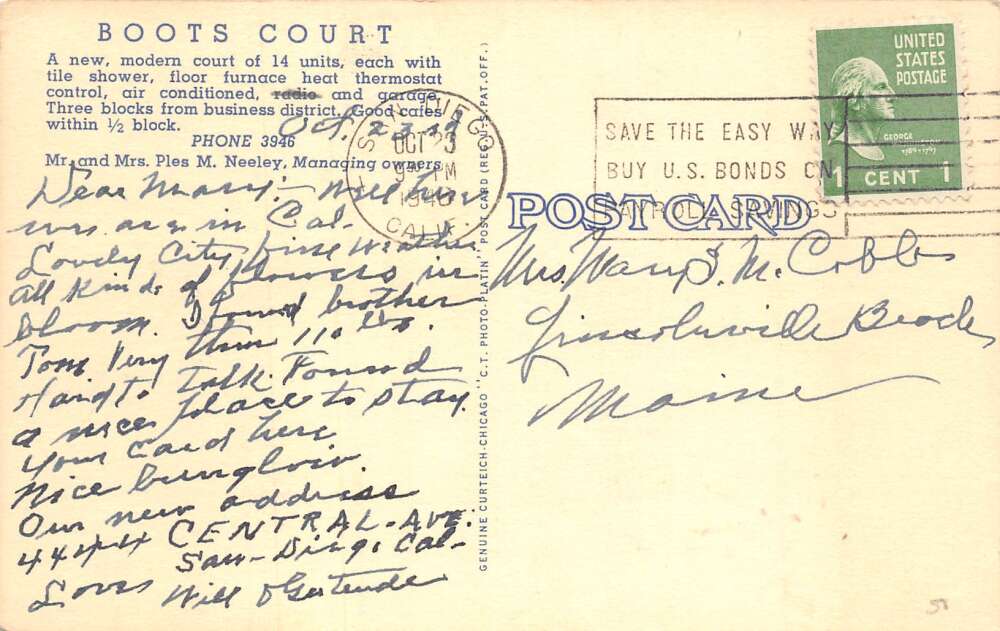 BOOTS COURT
A new, modern court of 14 units, each with
tile shower, floor furnace heat thermostat
control, air conditioned, radio and garage.
Three blocks from business district. Good cafes
within ½ block.
PHONE 3946
Mr. and Mrs. Ples M. Neeley, Managing owners
Oct. 23
Dear Mary:- Well here
in Cal.
Lovely City fine weather
All Kinds of flowers in
bloom. I found brother
Tom Very thin 110 lbs.
Hard to Talk. Found
a nice place to stay.
Your Card here
Nice bunglow.
Our new address
4444 CENTRAL-AVE.
San-Diego, Cal-
Loves Will & Gertrude
GENUINE CURTEICH-CHICAGO "C.T. PHOTO-PLATIN" POST CARD (REG. U.S. PAT. OFF.)
SAN DIEGO
OCT 23
9 30 PM
CALIF
SAVE THE EASY WAY
BUY U.S. BONDS ON
PAYROLL SAVINGS
UNITED
STATES
POSTAGE
GEORGE
WASHINGTON
1789-1797
1 CENT 1
POST CARD
Mrs. Mary S. McCobb
Lincolnville Beach
Maine